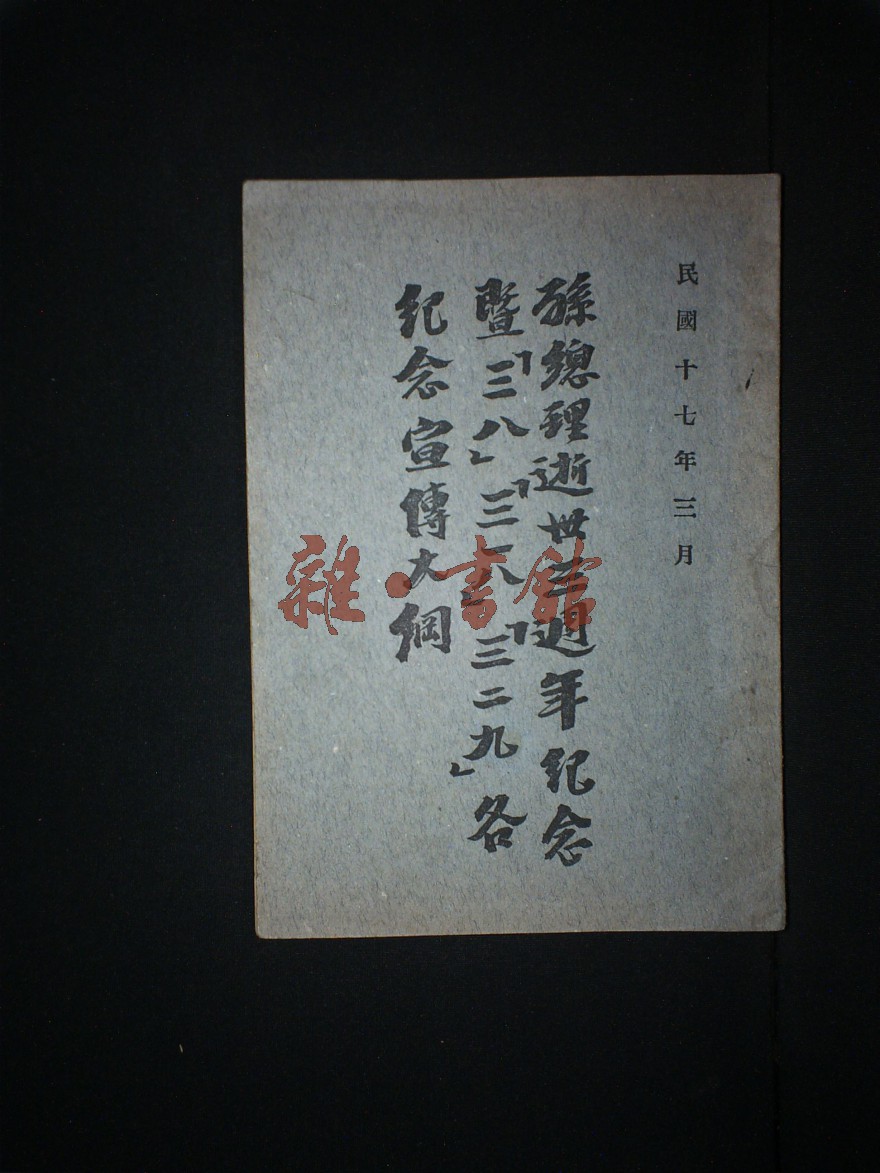 民國十七年三月
孫總理逝世三週年紀念
暨「三八」「三一八」「三二九」各
紀念宣傳大綱
雜·書館